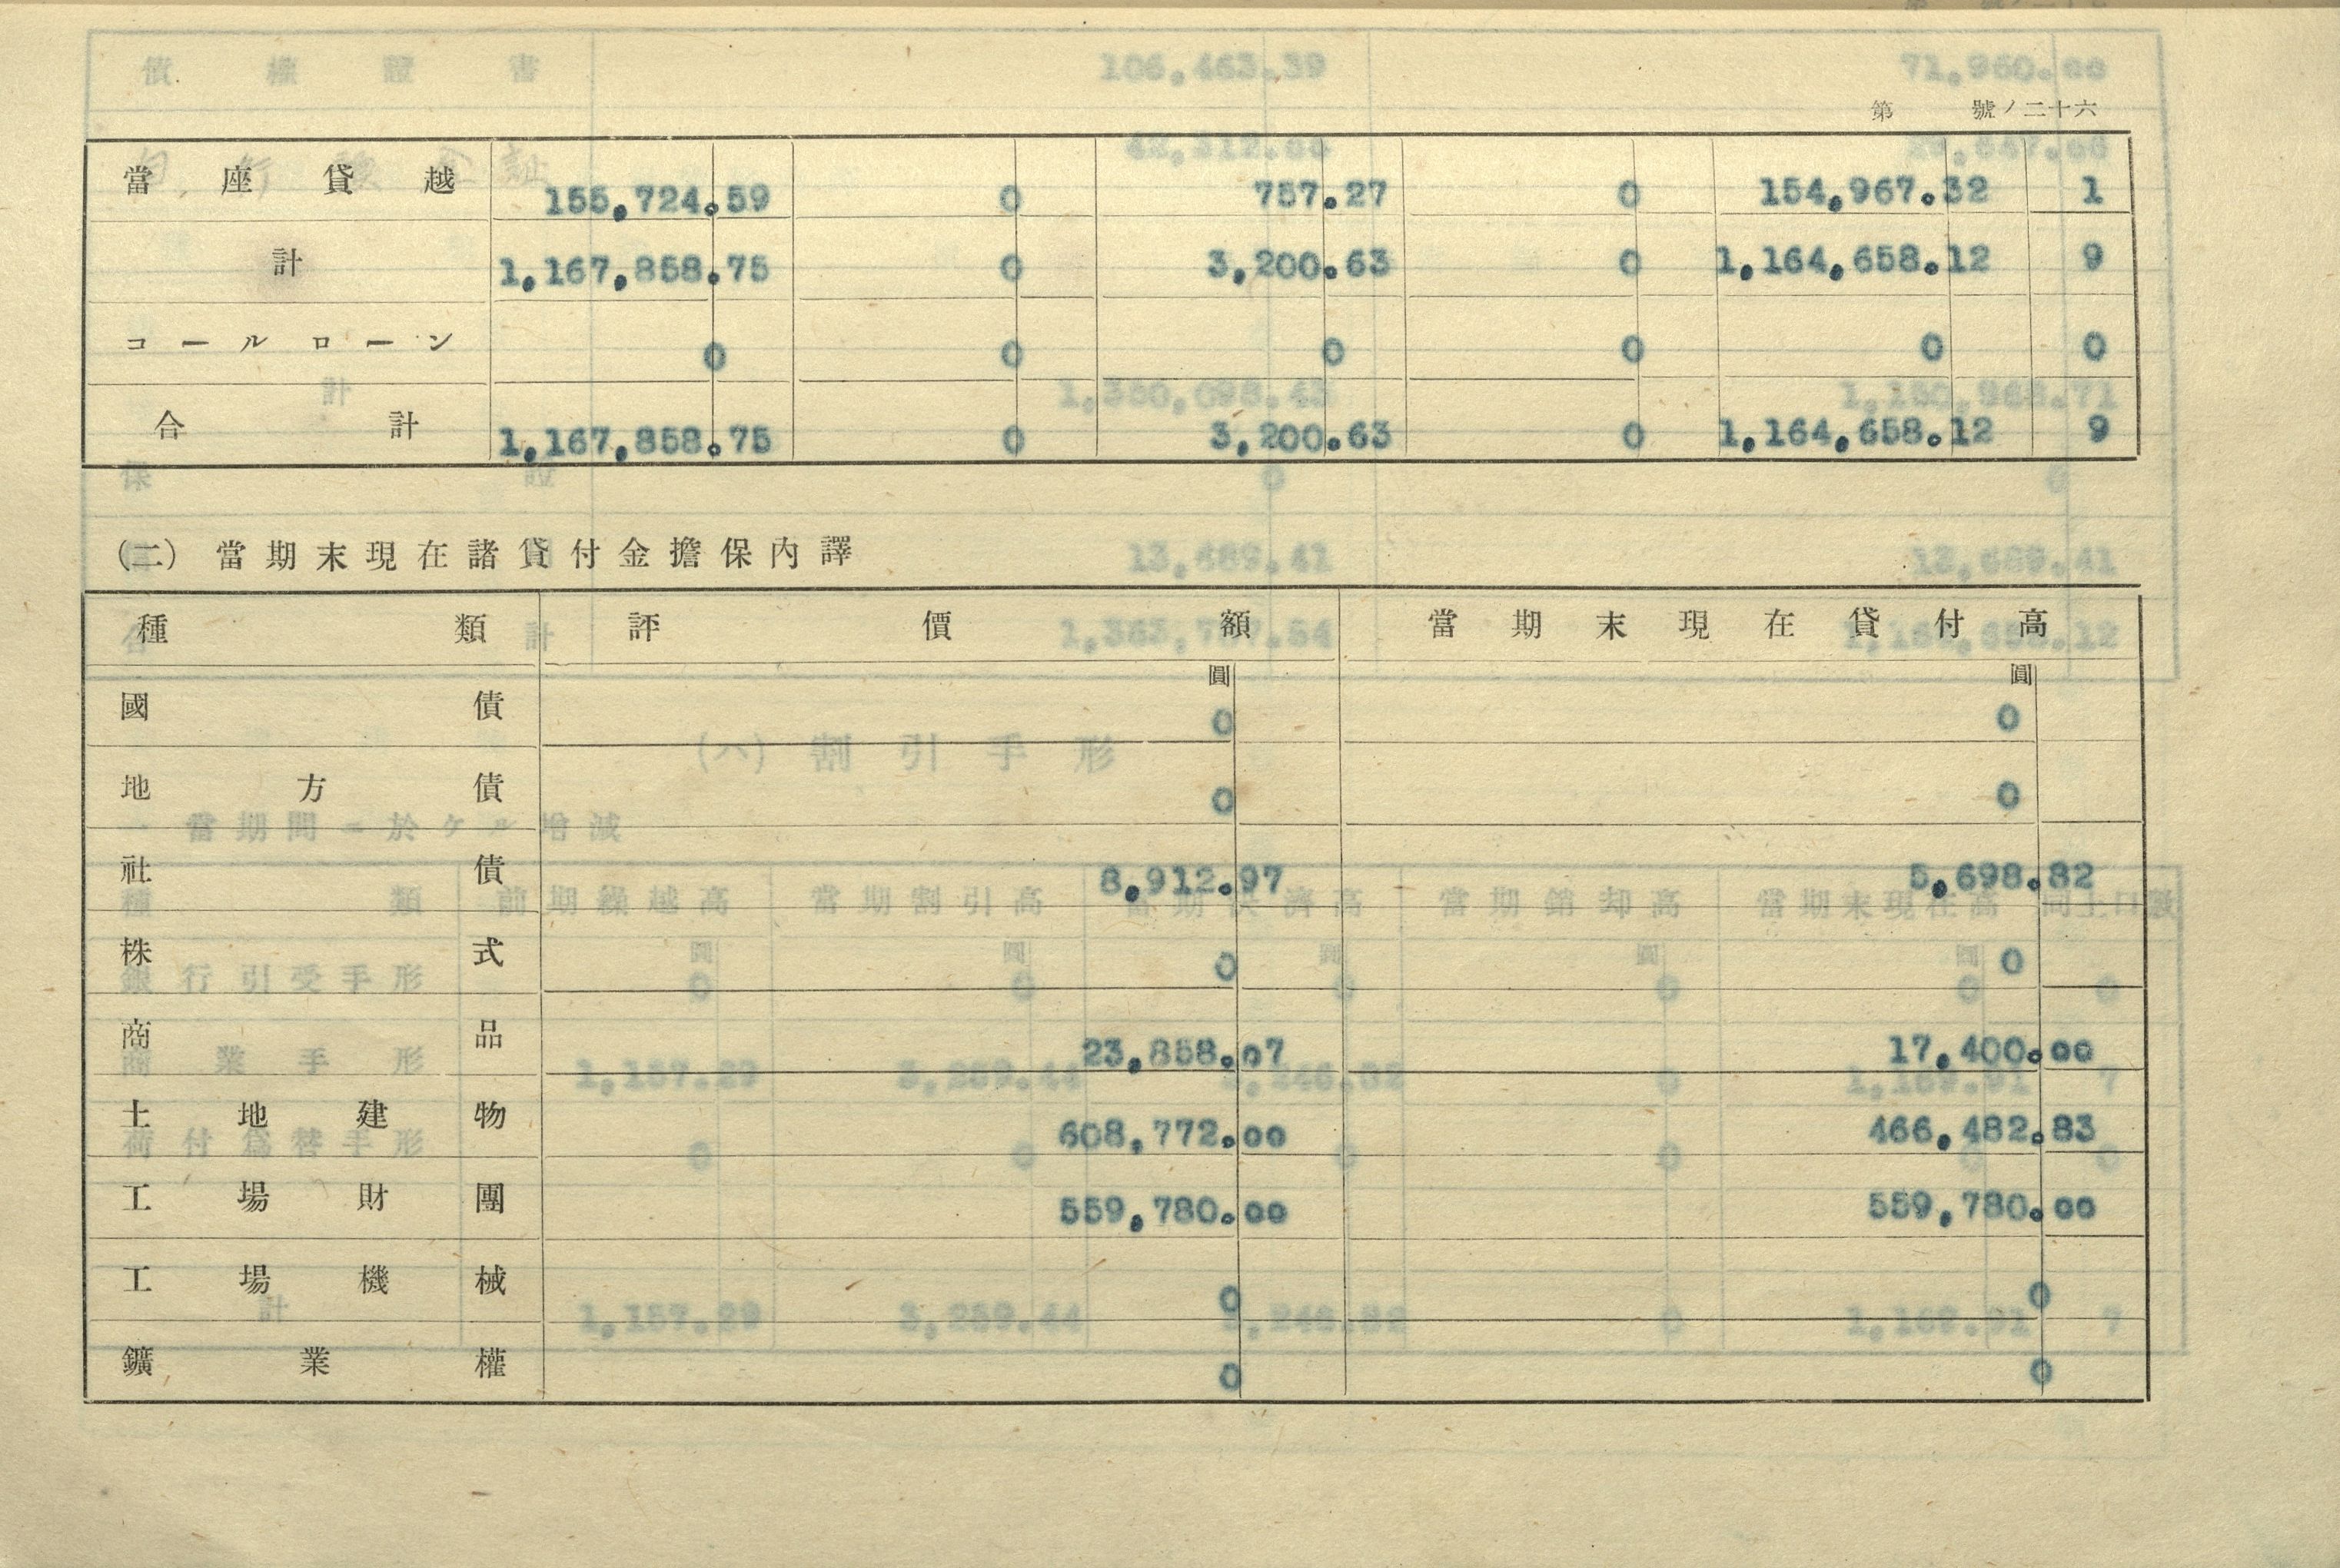 第 號ノ二十六
當座貸越 155,724.59 0 757.27 0 154,967.32 1
計 1,167,858.75 0 3,200.63 0 1,164,658.12 9
コールローン 0 0 0 0 0 0
合計 1,167,858.75 0 3,200.63 0 1,164,658.12 9
(二) 當期末現在諸貸付金擔保内譯
種類 評價額 當期末現在貸付高
圓 圓
國債 0 0
地方債 0 0
社債 8,912.97 5,698.82
株式 0 0
商品 23,858.07 17,400.00
土地建物 608,772.00 466,482.83
工場財團 559,780.00 559,780.00
工場機械 0 0
鑛業權 0 0